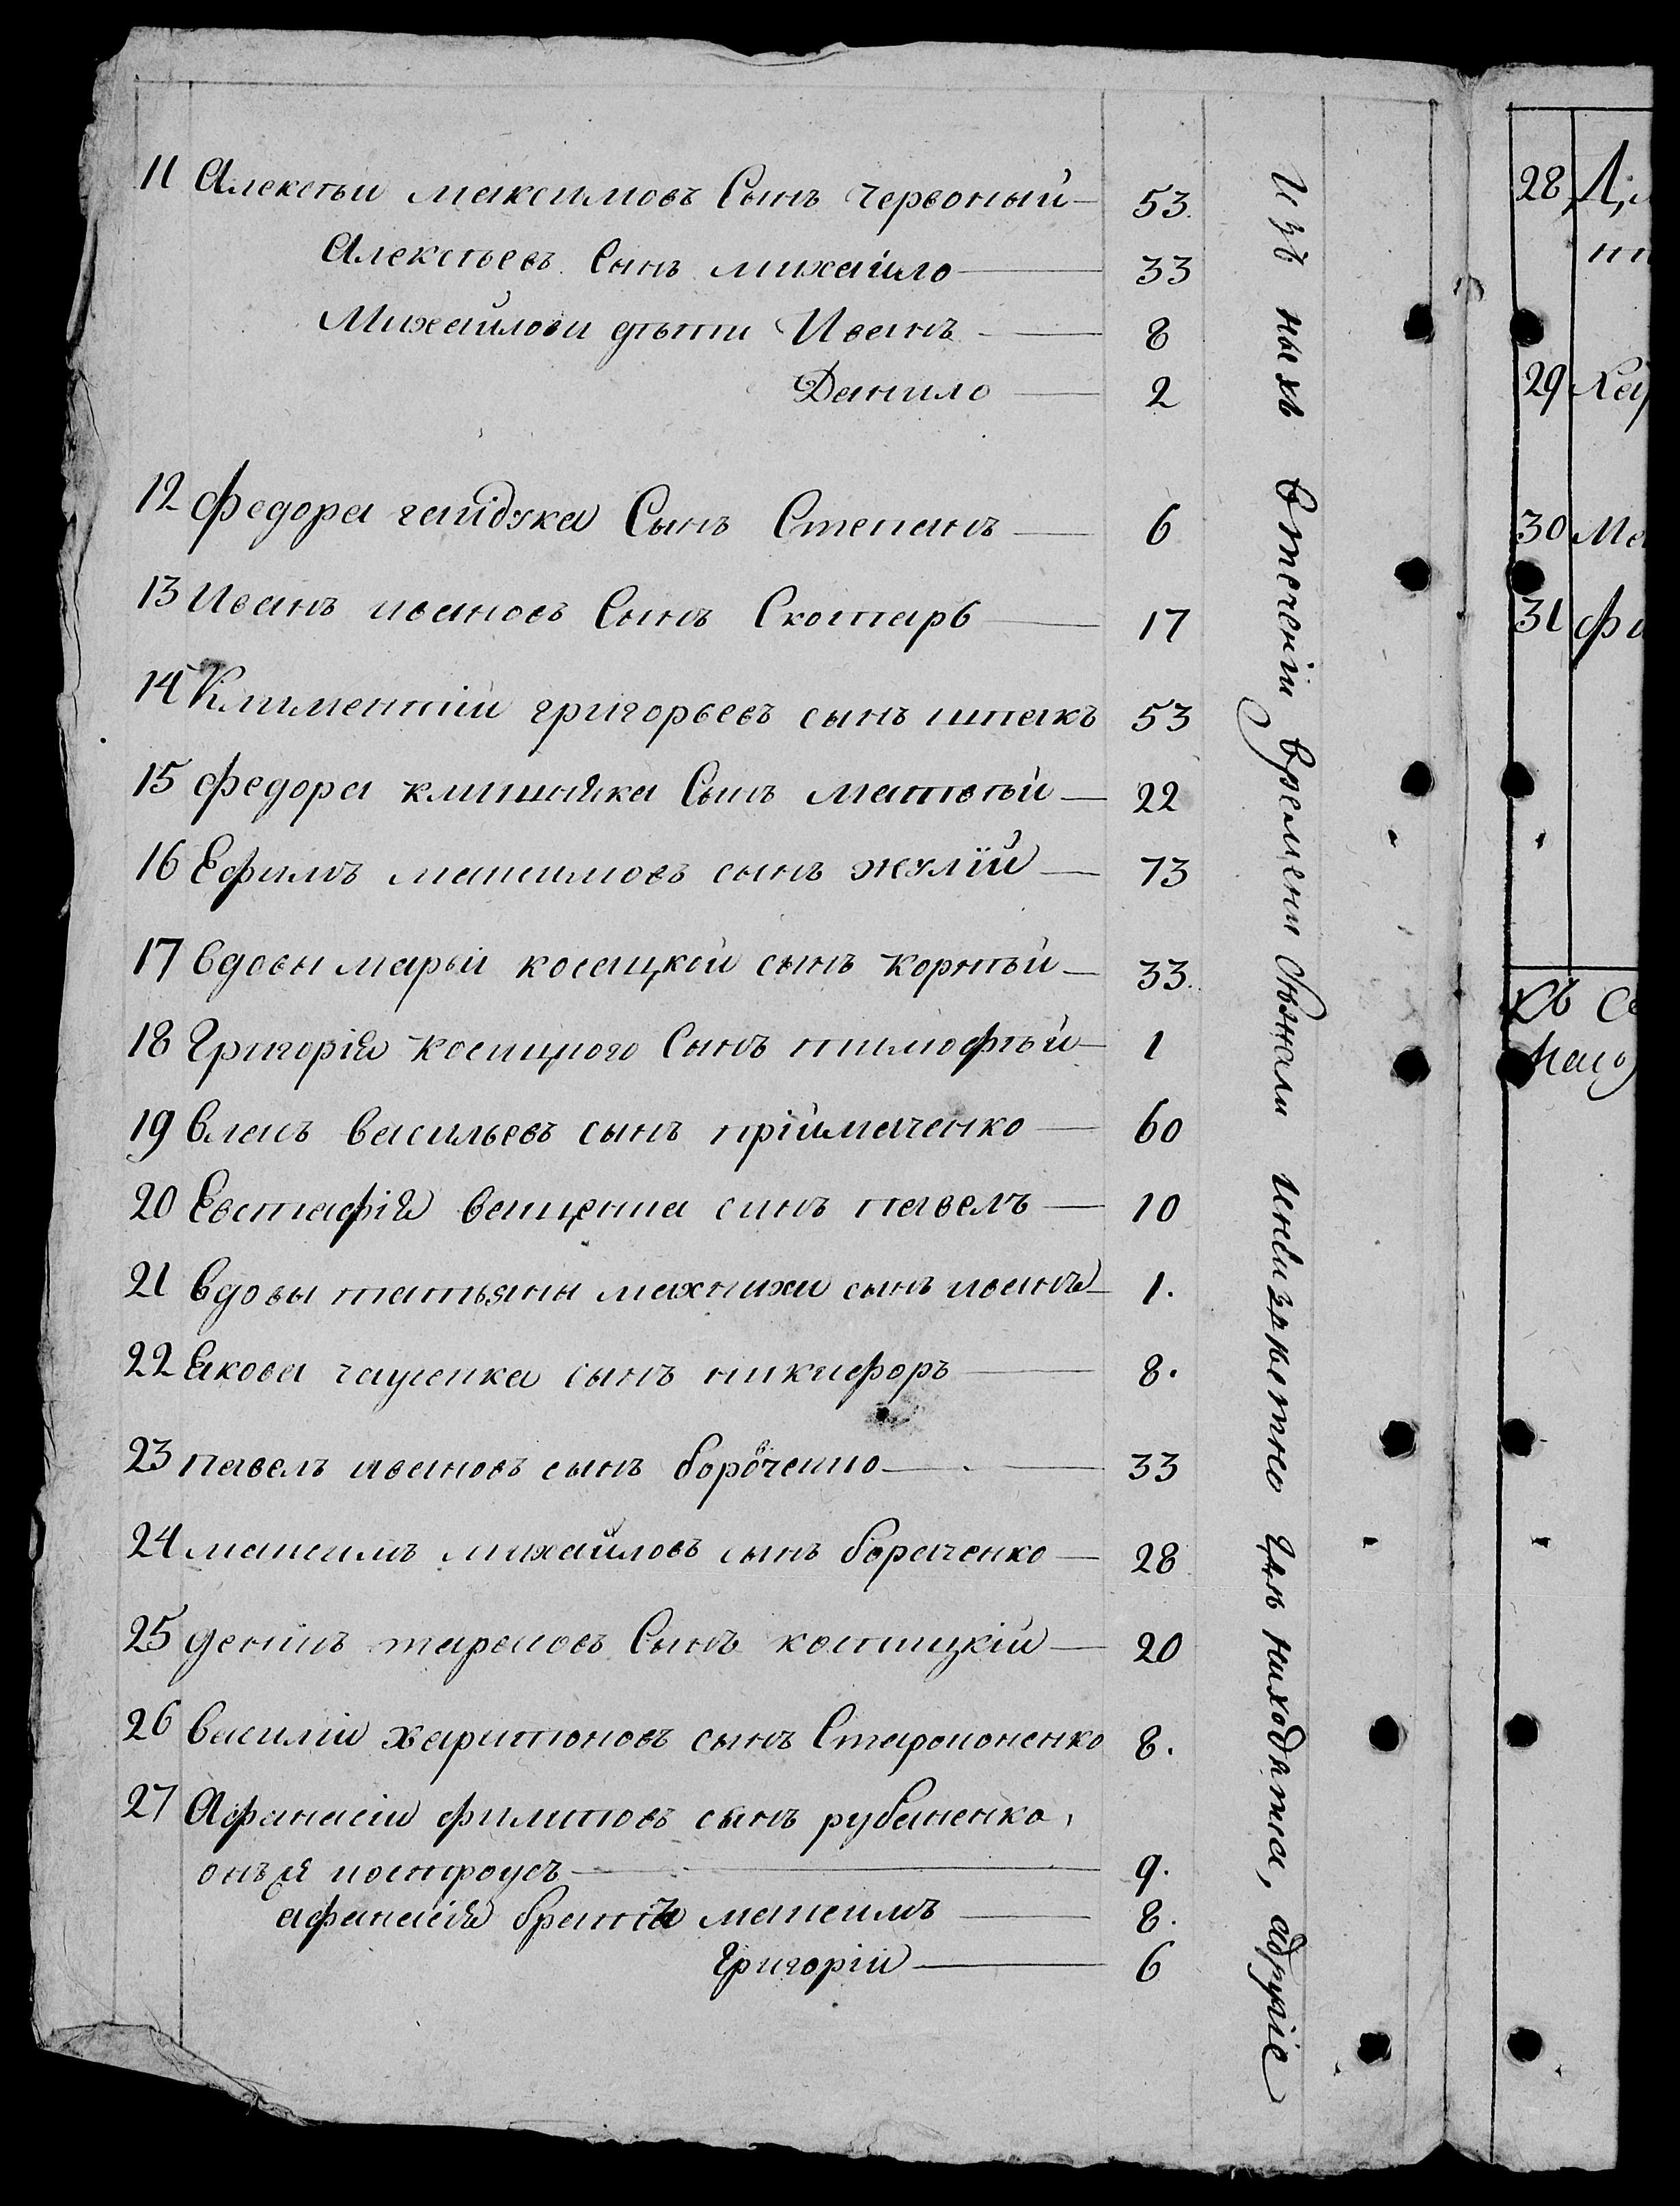 11 Алексѣи максимовъ Сынъ Червоный — 53.
Алексѣевъ Сынъ михаило — 33
Михайлови дѣти Иванъ — 8
Данило — 2
12 Федора гайдука Сынъ Степанъ — 6
13 Иванъ ивановъ Сынъ Скотарь — 17
14 Климентій григорьевъ сынъ шпакъ 53
15 Федора клишняка Сынъ матвѣй — 22
16 Ефимъ максимовъ сынъ жулій — 73
17 вдовы марьи косацкой сынъ корнѣй — 33.
18 Григорія косацкого Сынъ тимофѣй — 1
19 власъ васильевъ сынъ пріймаченко — 60
20 Евстафія ващенка синъ павелъ — 10
21 вдовы татьяны махнихи сынъ иванъ — 1.
22 Якова сынъ никифоръ — 8.
23 павелъ ивановъ сынъ — 33
24 максимъ михайловъ сынъ бораченко — 28
25 денисъ тарасовъ Сынъ костицкій — 20
26 василій харитоновъ сынъ 8.
27 Афанасій филиповъ сынъ рубаненко,
онъ я — 9.
афанасія братья максимъ — 8.
Григорій — 6
Изъ ныхъ втеченіи времени сбѣжали инеизвѣстно гдѣ находятся, адругіе
28
29 Хар
30 Ма
31 Фи